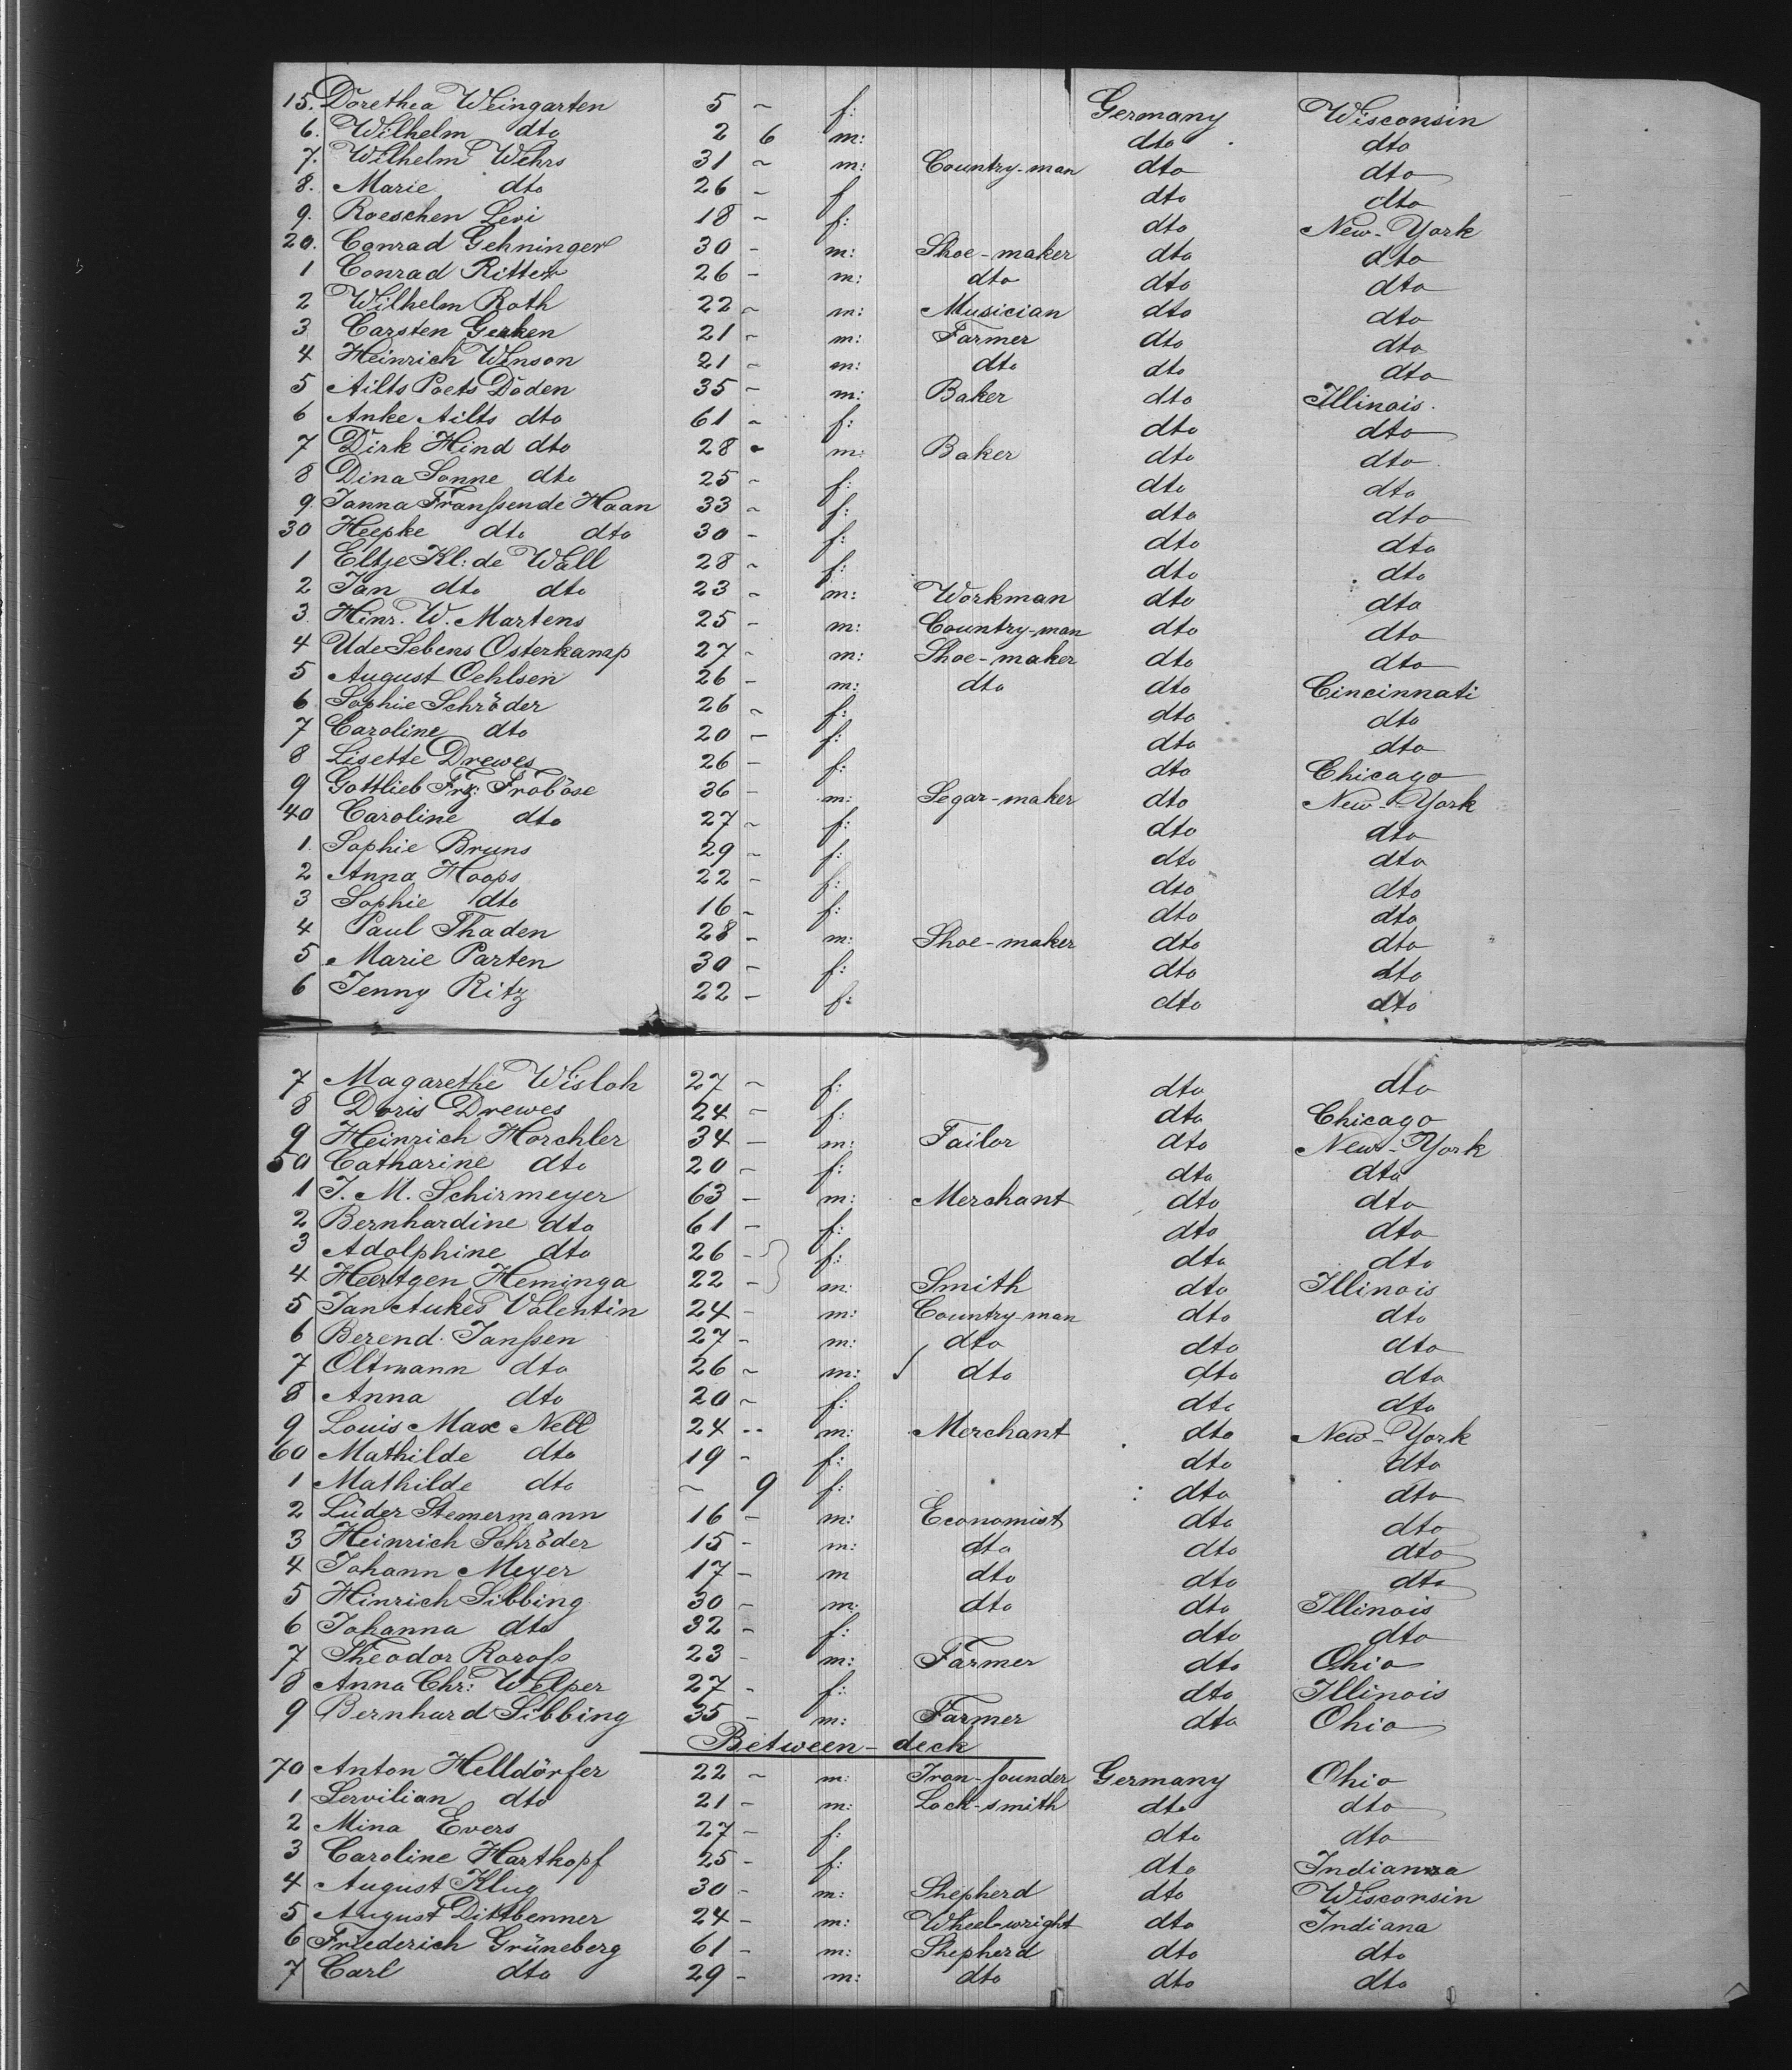 15. Dorethea Weingarten 5 ~ f: Germany Wisconsin
6. Wilhelm dto 2 6 m: dto dto
7. Wilhelm Wehrs 31 ~ m: Country-man dto dto
8. Marie dto 26 - f dto dto
9. Roeschen Levi 18 - f: dto New-York
20. Conrad Gehninger 30 - m: Shoe-maker dto dto
1 Conrad Ritter 26 - m: dto dto dto
2 Wilhelm Roth 22 ~ m: Musician dto dto
3 Carsten Gerken 21 - m: Farmer dto dto
4 Heinrich Winson 21 - m: dto dto dto
5 Ailts Poets Doden 35 - m: Baker dto Illinois.
6 Anke Ailts dto 61 ~ f: dto dto
7 Dirk Hind dto 28 - m: Baker dto dto
8 Dina Sonne dto 25 ~ f: dto dto
9 Janna Franssen de Haan 33 ~ f: dto dto
30 Heepke dto dto 30 - f: dto dto
1 Eltje Kl: de Wall 28 ~ f: dto dto
2 Jan dto dto 23 - m: Workman dto dto
3 Hinr. W. Martens 25 - m: Country-man dto dto
4 Ude Sebens Osterkamp 27 - m: Shoe-maker dto dto
5 August Oehlsen 26 - m: dto dto Cincinnati
6 Sophie Schröder 26 ~ f: dto dto
7 Caroline dto 20 - f: dto dto
8 Lisette Drewes 26 - f: dto Chicago
9 Gottlieb Frz: Froböse 36 - m: Segar-maker dto New-York
40 Caroline dto 27 ~ f: dto dto
1. Sophie Bruns 29 ~ f: dto dto
2 Anna Hoops 22 - f: dto dto
3 Sophie dto 16 - f: dto dto
4 Paul Thaden 28 - m: Shoe-maker dto dto
5 Marie Parten 30 - f: dto dto
6 Jenny Ritz 22 - f: dto dto
7 Magarethe Wisloh 27 ~ f: dto dto
8 Doris Drewes 24 - f: dto Chicago
9 Heinrich Horchler 34 - m: Tailor dto New-York
50 Catharine dto 20 - f: dto dto
1 J. M. Schirmeyer 63 - m: Merchant dto dto
2 Bernhardine dto 61 - f: dto dto
3 Adolphine dto 26 - f: dto dto
4 Heertgen Heminga 22 - m: Smith dto Illinois
5 Jan Aukes Valentin 24 - m: Country-man dto dto
6 Berend Janssen 27 - m: dto dto dto
7 Oltmann dto 26 ~ m: dto dto dto
8 Anna dto 20 ~ f: dto dto
9 Louis Max Nell 24 - m: Merchant dto New-York
60 Mathilde dto 19 - f: dto dto
1 Mathilde dto ~ 9 f: dto dto
2 Lüder Stemermann 16 - m: Economist dto dto
3 Heinrich Schröder 15 - m: dto dto dto
4 Johann Meyer 17 - m dto dto dto
5 Hinrich Sibbing 30 - m: dto dto Illinois
6 Johanna dto 32 - f: dto dto
7 Theodor Rorofs 23 - m: Farmer dto Ohio
8 Anna Chr: Welper 27 - f: dto Illinois
9 Bernhard Sibbing 35 - m: Farmer dto Ohio
Between-deck
70 Anton Helldörfer 22 ~ m: Iron-founder Germany Ohio
1 Servilian dto 21 - m: Lock-smith dto dto
2 Mina Evers 27 - f: dto dto
3 Caroline Harthopf 25 - f: dto Indianna
4 August Klug 30 - m: Shepherd dto Wisconsin
5 August Dittbenner 24 - m: Wheel-wright dto Indiana
6 Friederich Grüneberg 61 - m: Shepherd dto dto
7 Carl dto 29 - m: dto dto dto